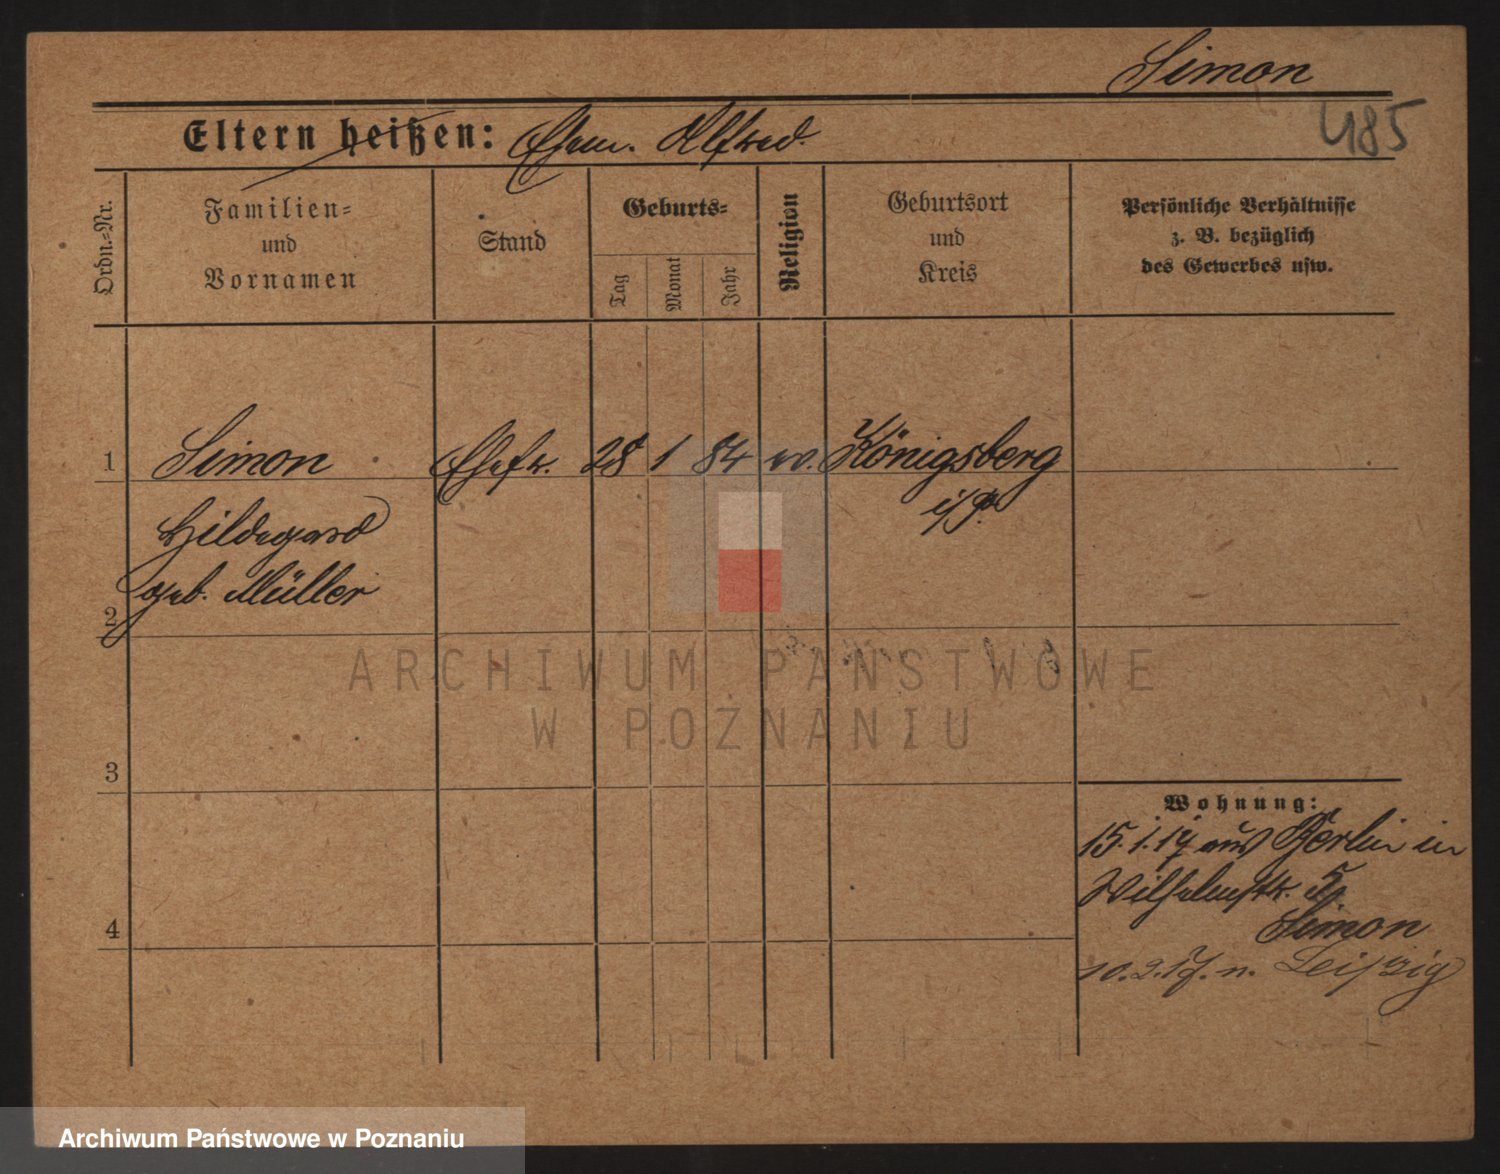 Simon
485
Eltern heißen: Ehem. Alfred.
Ordn.-Nr.
Familien-
und
Vornamen
Stand
Geburts-
Tag
Monat
Jahr
Religion
Geburtsort
und
Kreis
Persönliche Verhältnisse
z. B. bezüglich
des Gewerbes usw.
1 Simon Ehefr. 28 1 84 ev. Königsberg
i/Pr
Hildegard
geb. Müller
2
ARCHIWUM PAŃSTWOWE
W POZNANIU
3
Wohnung:
15.1.17 aus Berlin in
Wilhelmstr. 5
Simon
4
10.2.17. n. Leipzig
Archiwum Państwowe w Poznaniu